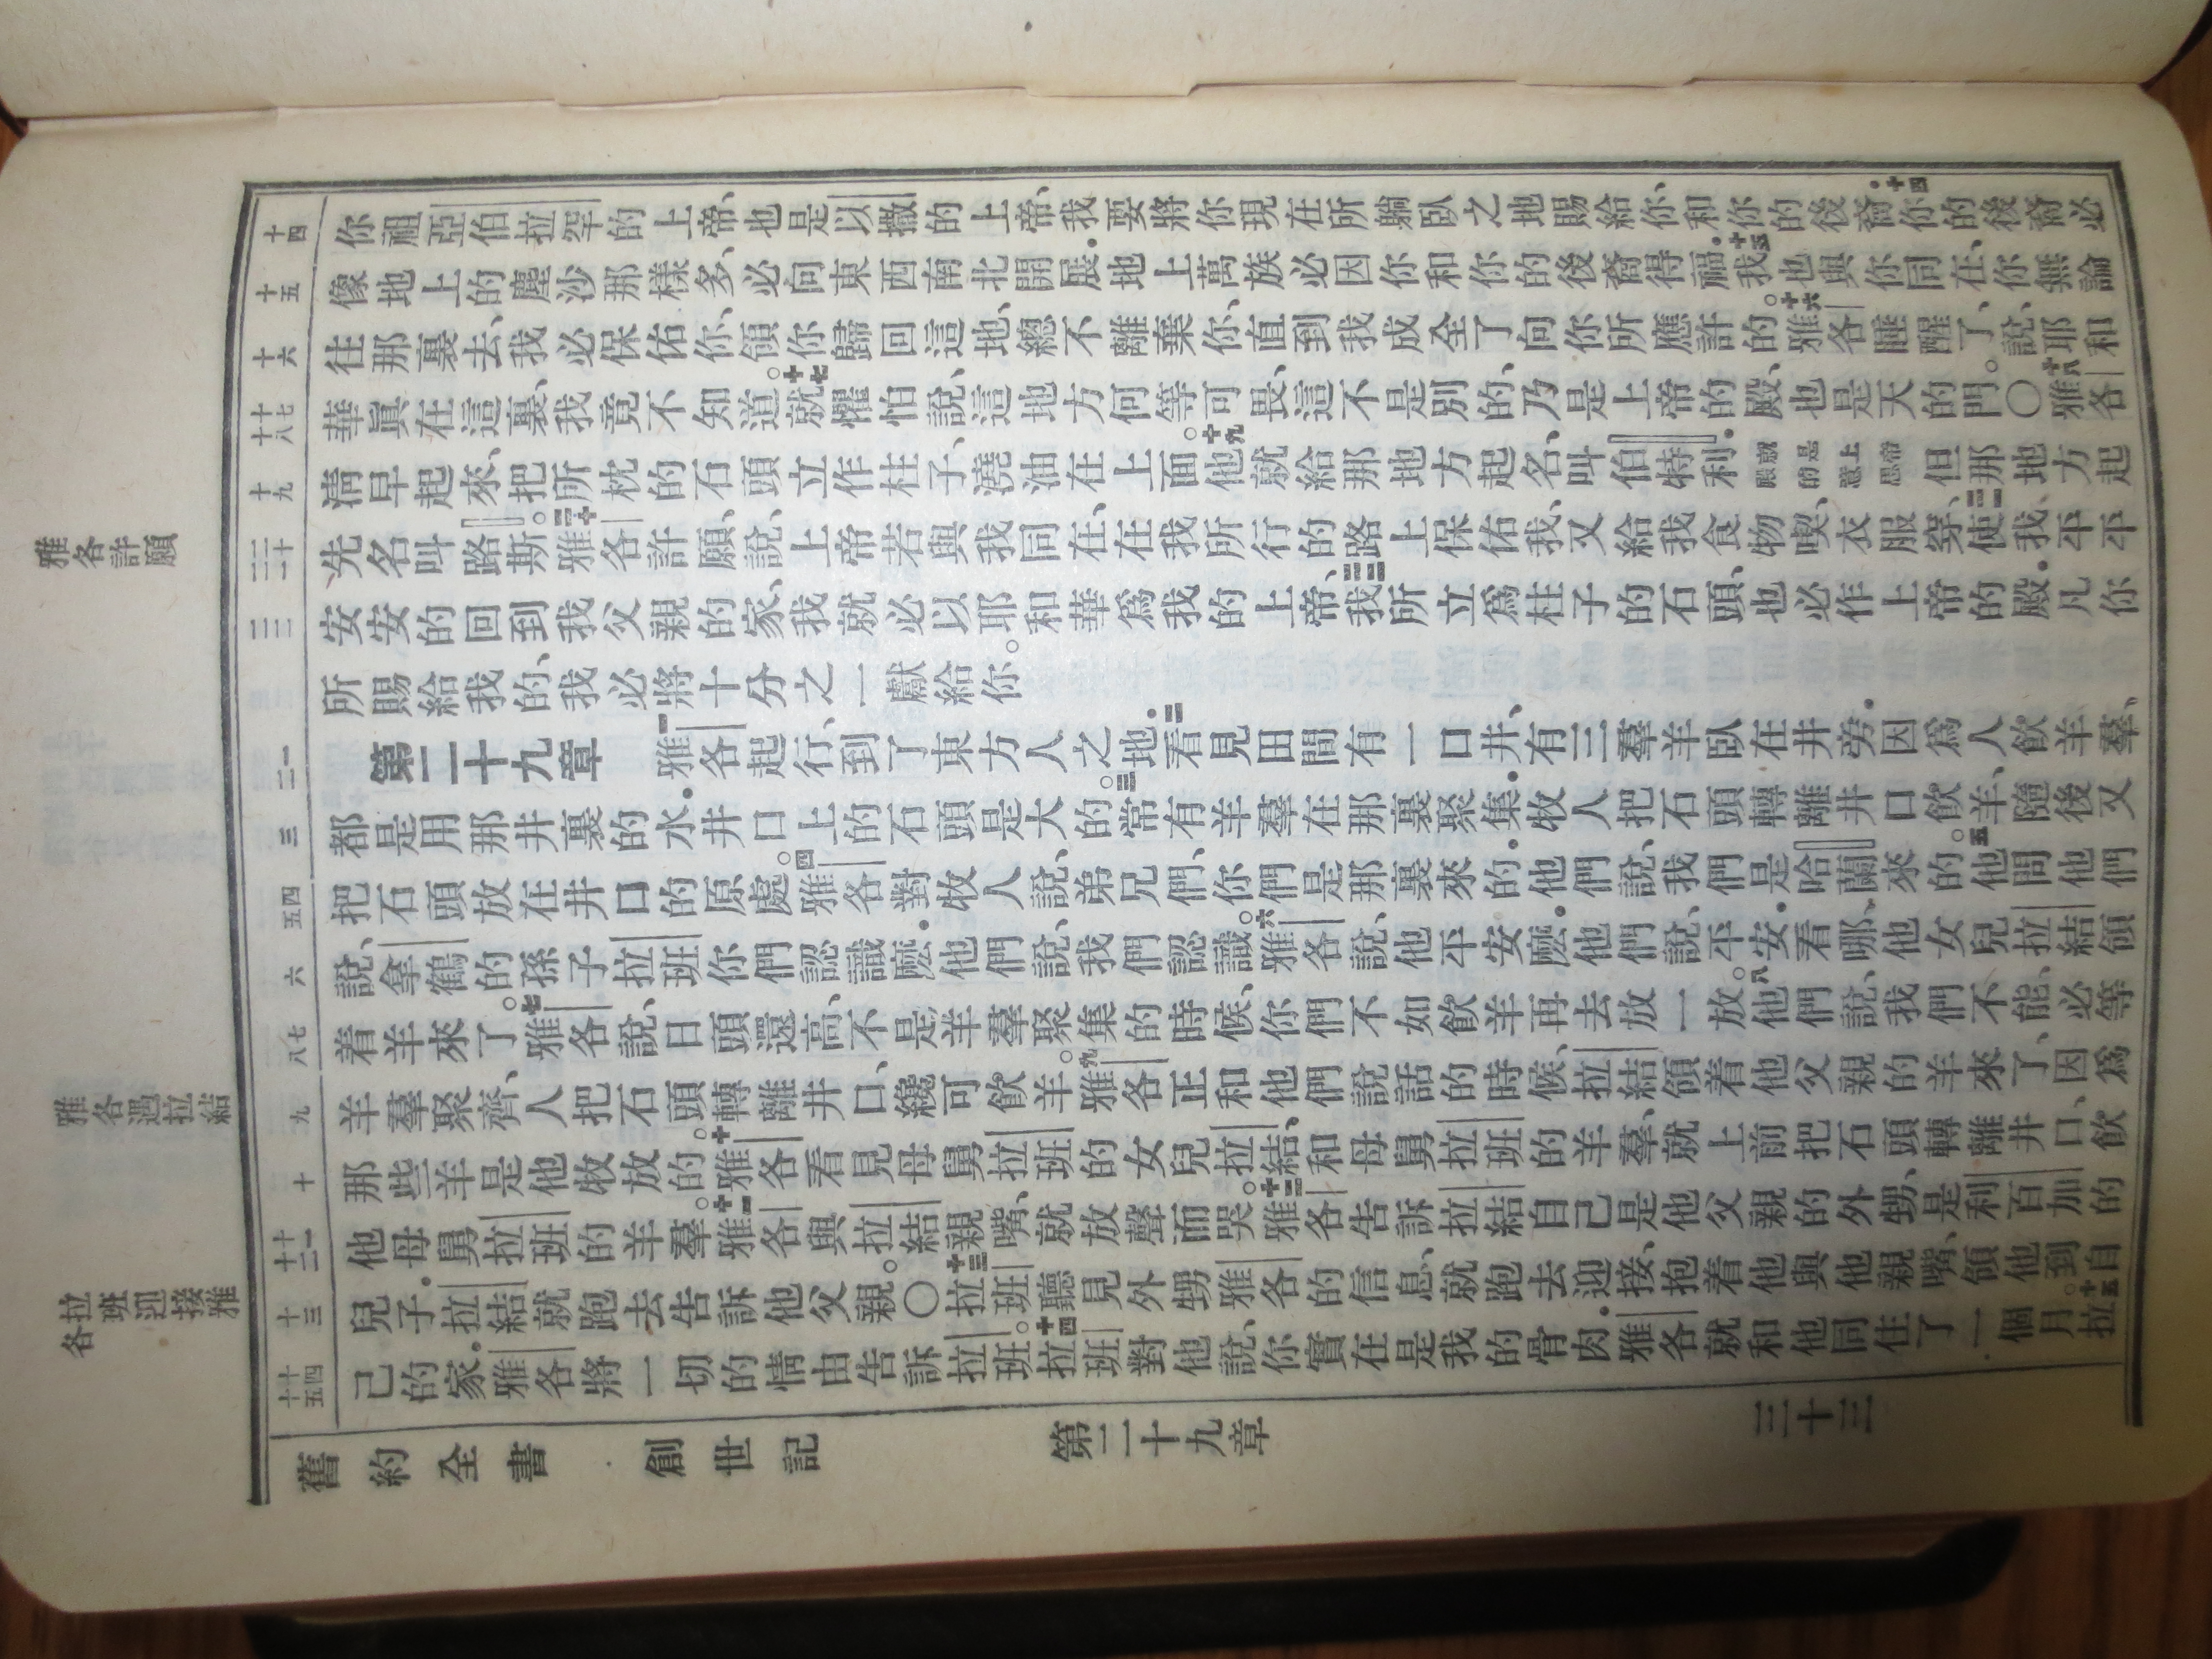 雅各許願
雅各遇拉結
拉班迎接雅
各
十四
十五
十六
十七
十八
十九
二十
二一
二二
一
二
三
四
五
六
七
八
九
十
十一
十二
十三
十四
十五
你祖亞伯拉罕的上帝、也是以撒的上帝、我要將你現在所躺臥之地賜給你、和你的後裔.十四你的後裔必
像地上的塵沙那樣多、必向東西南北開展.地上萬族必因你和你的後裔得福.十五我也與你同在、你無論
往那裏去、我必保佑你、領你歸回這地、總不離棄你、直到我成全了向你所應許的。十六雅各睡醒了、說、耶和
華眞在這裏、我竟不知道。十七就懼怕說、這地方何等可畏、這不是別的、乃是上帝的殿、也是天的門。〇十八雅各
淸早起來、把所枕的石頭立作柱子、澆油在上面。十九他就給那地方起名、叫伯特利.就是上帝殿的意思但那地方起
先名叫路斯。二十雅各許願、說、上帝若與我同在、在我所行的路上保佑我、又給我食物喫、衣服穿、二一使我平平
安安的回到我父親的家、我就必以耶和華爲我的上帝、二二我所立爲柱子的石頭、也必作上帝的殿.凡你
所賜給我的、我必將十分之一獻給你。
第二十九章 一雅各起行、到了東方人之地.二看見田間有一口井、有三羣羊臥在井旁.因爲人飲羊羣、
都是用那井裏的水.井口上的石頭是大的。三常有羊羣在那裏聚集.牧人把石頭轉離井口飲羊、隨後又
把石頭放在井口的原處。四雅各對牧人說、弟兄們、你們是那裏來的.他們說、我們是哈蘭來的。五他問他們
說、拿鶴的孫子拉班、你們認識麼.他們說、我們認識。六雅各說、他平安麼.他們說、平安.看哪、他女兒拉結領
着羊來了。七雅各說、日頭還高、不是羊羣聚集的時候、你們不如飲羊再去放一放。八他們說、我們不能、必等
羊羣聚齊、人把石頭轉離井口、纔可飲羊。九雅各正和他們說話的時候、拉結領着他父親的羊來了、因爲
那些羊是他牧放的。十雅各看見母舅拉班的女兒拉結、和母舅拉班的羊羣、就上前把石頭轉離井口、飲
他母舅拉班的羊羣。十一雅各與拉結親嘴、就放聲而哭。十二雅各告訴拉結自己是他父親的外甥、是利百加的
兒子.拉結就跑去告訴他父親。〇十三拉班聽見外甥雅各的信息、就跑去迎接、抱着他與他親嘴、領他到自
己的家.雅各將一切的情由告訴拉班。十四拉班對他說、你實在是我的骨肉.雅各就和他同住了一個月。十五拉
舊約全書 創世記 第二十九章 三十三